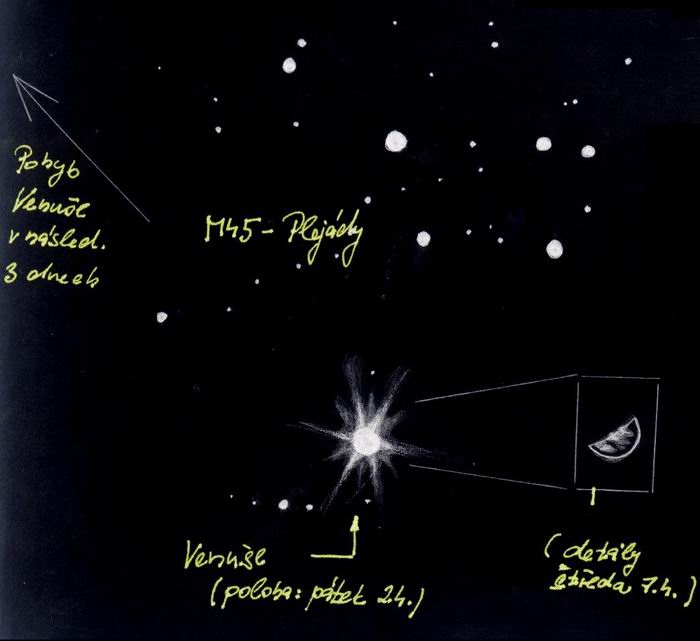 Pohyb
Venuše
v násled.
3 dnech
M45 - Plejády
Venuše
(poloha: pátek 2.4.)
(detaily
středa 7.4.)